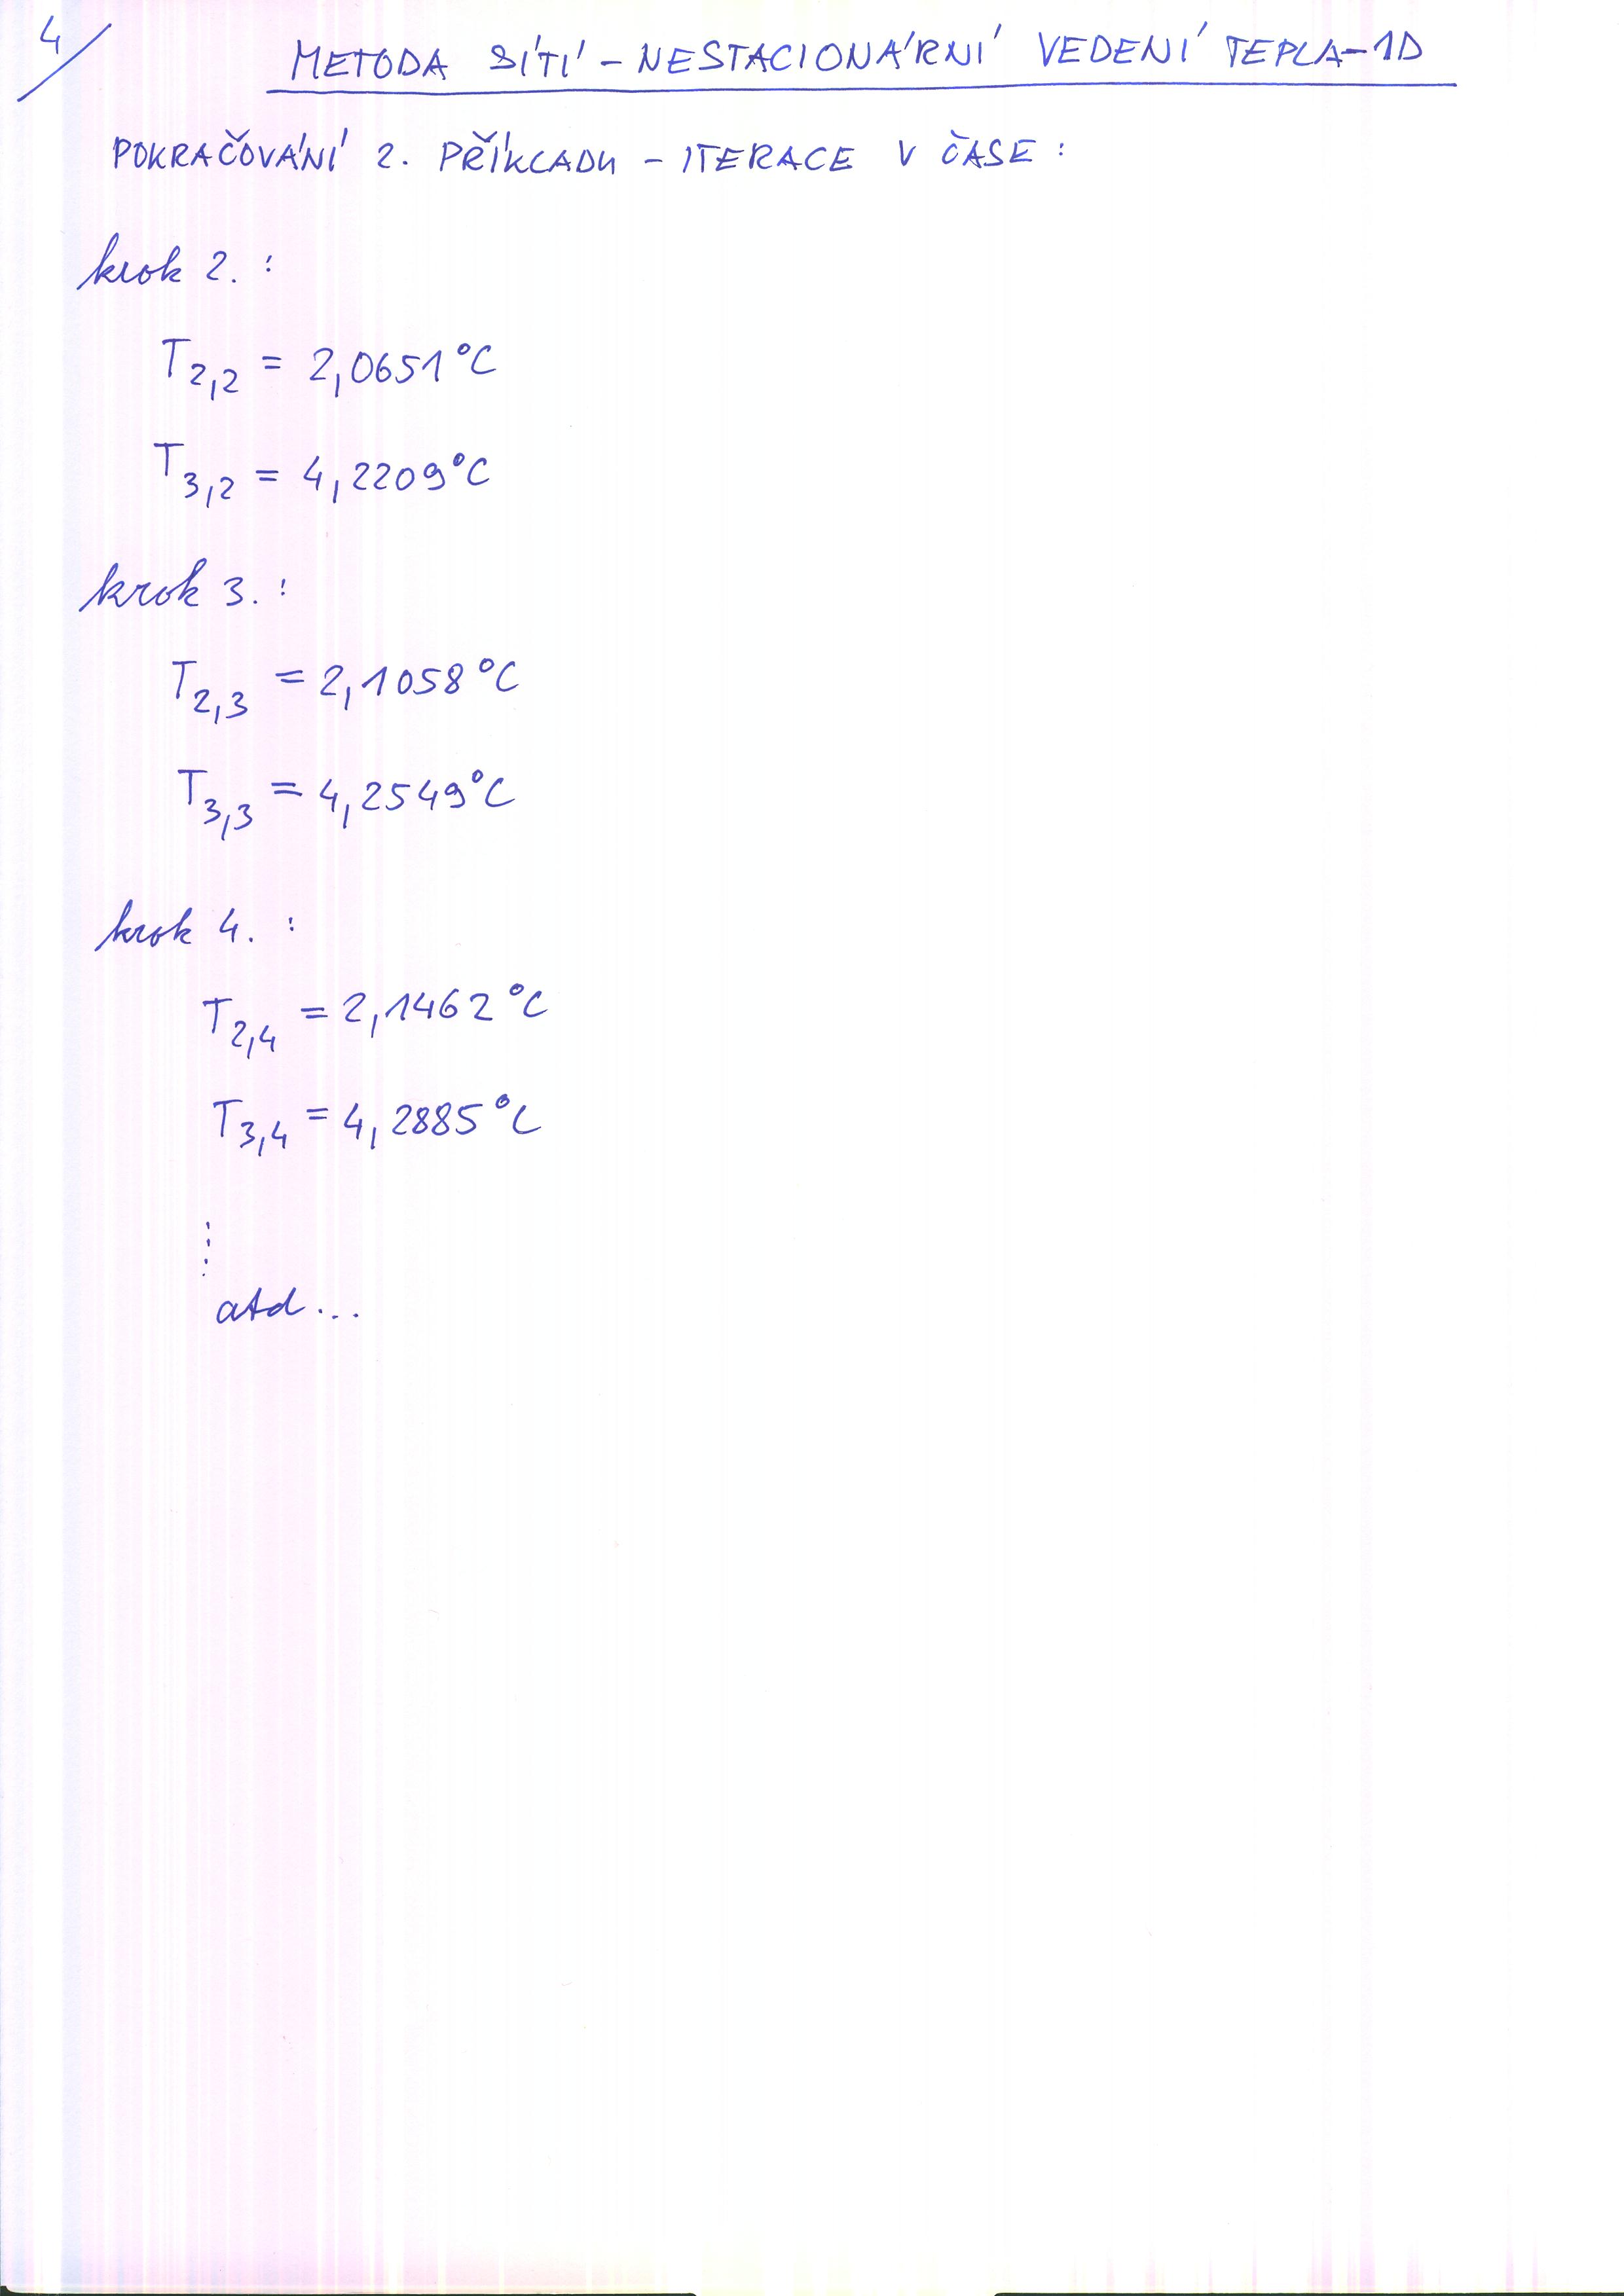 4
METODA SÍTÍ - NESTACIONÁRNÍ VEDENÍ TEPLA-1D
POKRAČOVÁNÍ 2. PŘÍKLADU - ITERACE V ČASE :
krok 2. :
T2,2 = 2,0651°C
T3,2 = 4,2209°C
krok 3. :
T2,3 = 2,1058°C
T3,3 = 4,2549°C
krok 4. :
T2,4 = 2,1462°C
T3,4 = 4,2885°C
⋮
atd...